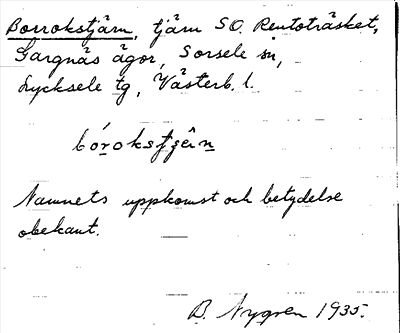 Borrokstjärn, tjärn SO. Rentoträsket,
Gargnäs ägor, Sorsele sn,
Lycksele tg, Västerb. l.
Namnets uppkomst och betydelse
obekant.
B. Nygren 1935.